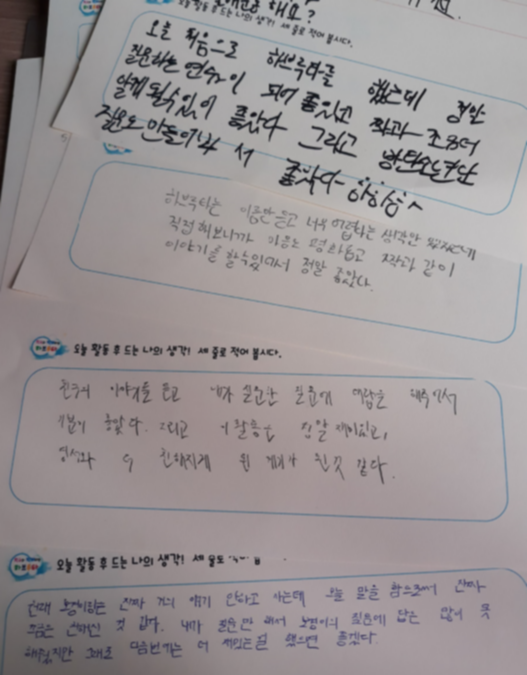 해요?
오늘 활동 후 드는 나의 생각! 세 줄로 적어 봅시다.
오늘 처음으로 하브루타를 했는데 정말
질문하는 연습이 되어 좋았고 짝과 조금더
알게 될수있어 좋았다 그리고 방탄소년단
질문도 만들어 봐서 좋았다
하브루타는 이름만 듣고 너무 어렵다는 생각만
직접 해보니까 마음은 평화롭고 짝과 같이
이야기를 할수있어서 정말 좋았다.
오늘 활동 후 드는 나의 생각! 세 줄로 적어 봅시다.
친구의 이야기를 듣고 내가 질문한 질문에 대답을 해주어서
기분이 좋았다. 그리고 이 활동은 정말 재미있고,
더 친해지게 된 계기가 된것 같다.
오늘 활동 후 드는 나의 생각! 세 줄로
진짜 거의 얘기 안하고 사는데 오늘 말을 함으로써 진짜
조금은 친해진 것 같다. 내가 질문만 해서 질문에 답은 많이 못
해줬지만 그래도 다음번에는 더 재밌는걸 했으면 좋겠다.